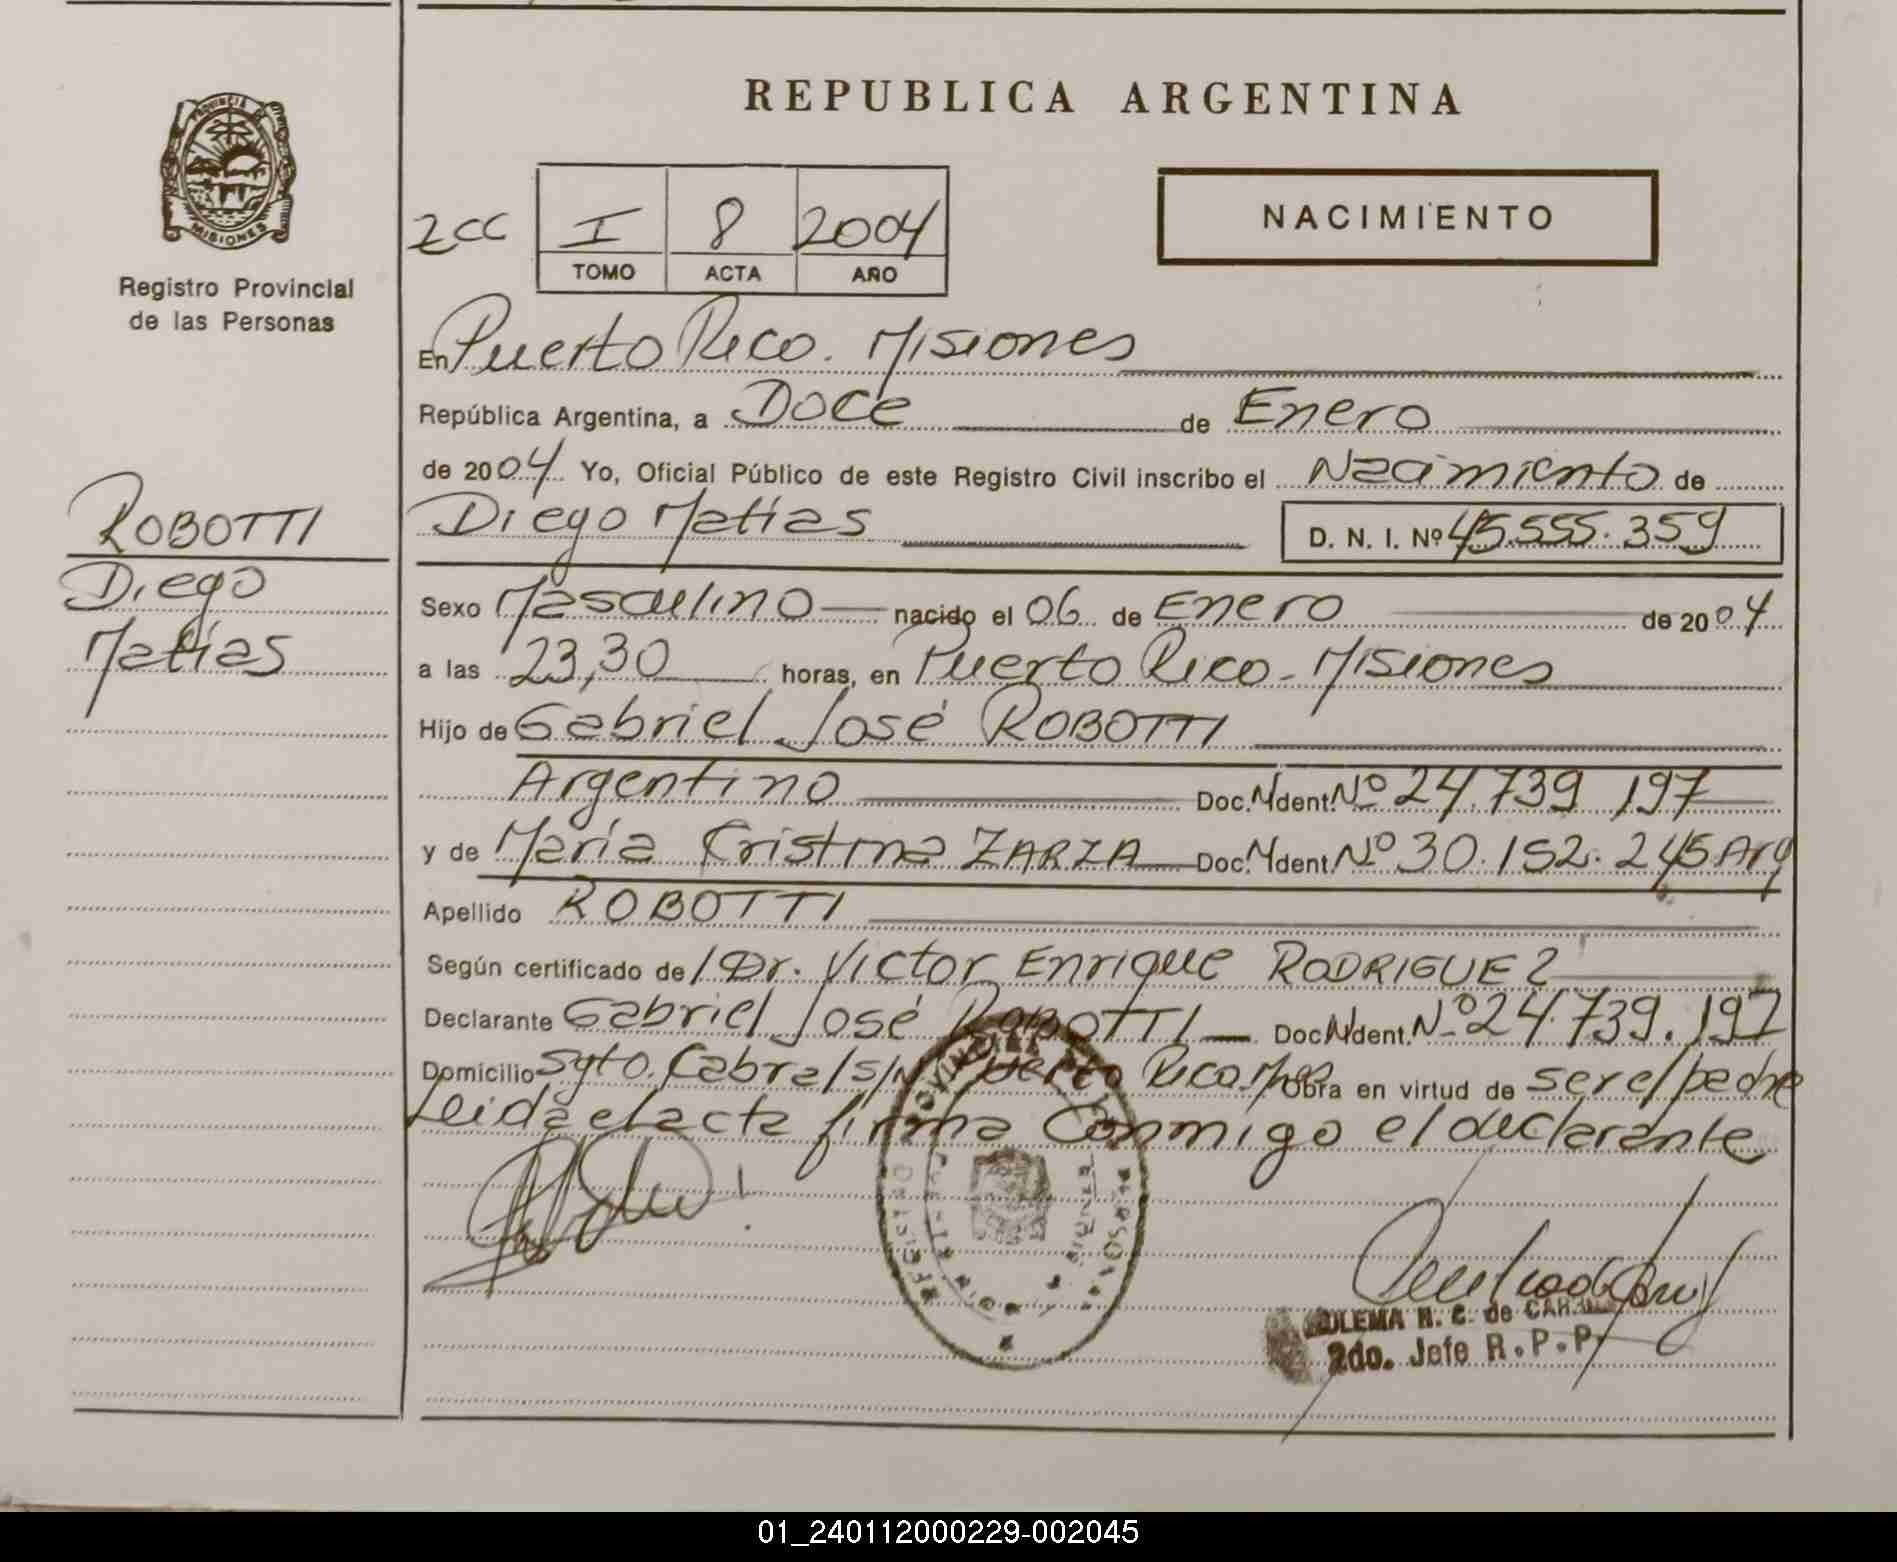 REPUBLICA ARGENTINA
PROVINCIA DE
MISIONES
Registro Provincial
de las Personas
NACIMIENTO
zcc I 8 2004
TOMO ACTA AÑO
En Puerto Rico. Misiones
República Argentina, a Doce de Enero
de 2004 Yo, Oficial Público de este Registro Civil inscribo el Nacimiento de
Diego Matías D. N. I. Nº 45.555.359
ROBOTTI
Diego
Matías
Sexo Masculino nacido el 06 de Enero de 2004
a las 23,30 horas, en Puerto Rico - Misiones
Hijo de Gabriel José ROBOTTI
Argentino Doc. Ident. Nº 24.739 197
y de María Cristina ZARZA Doc. Ident. Nº 30.152.245 Arg
Apellido ROBOTTI
Según certificado de / Dr. Victor Enrique RODRIGUEZ
Declarante Gabriel José ROBOTTI Doc. Ident. Nº 24.739.197
Domicilio Sgto. Cabral S/N Puerto Rico. Mnes Obra en virtud de ser el padre
Leida el acta firma Conmigo el declarante
ZULEMA R. C. de
2do. Jefe R.P.P.
01_240112000229-002045